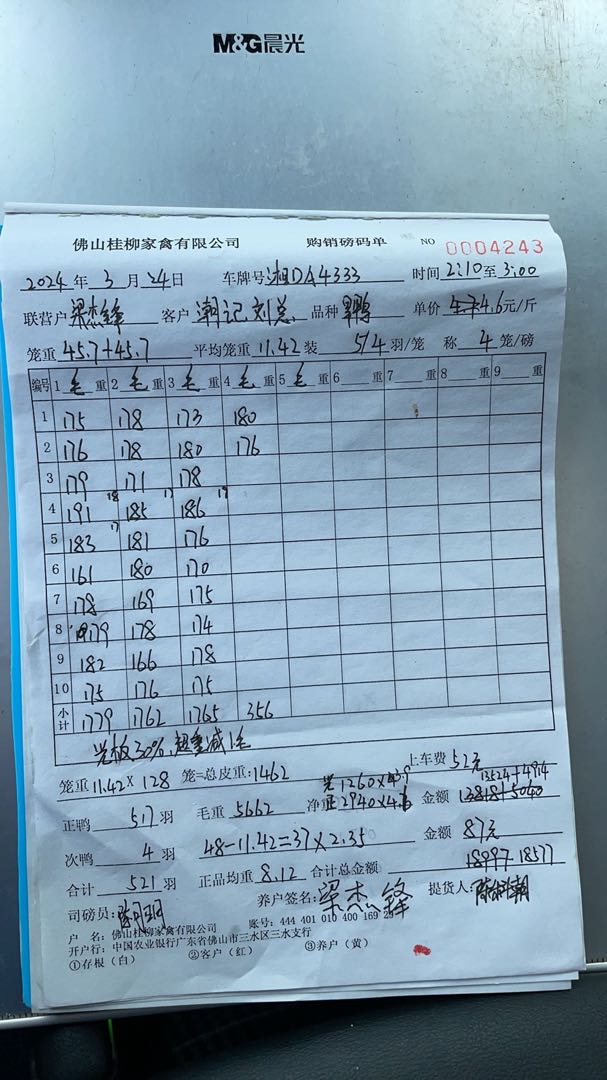 M&G晨光
佛山桂柳家禽有限公司 购销磅码单 NO 0004243
2024年 3月 24日 车牌号湘DA4333 时间2:10至3:00
联营户 梁杰锋 客户 潮记刘总 品种 单价 4.6元/斤
笼重 45.7+45.7 平均笼重 11.42 装 5/4 羽/笼 称 4 笼/磅
编号 1毛重 2毛重 3毛重 4毛重 5毛重 6 重 7 重 8 重 9 重
1 175 178 173 180
2 176 178 180 176
3 179 171 178
18 17 19
4 191 185 186
17
5 183 181 176
6 161 180 170
7 178 169 175
8 179 178 174
9 182 166 178
10 175 176 175
小计 1779 1762 1765 356
光板30%,超重减1毛
上车费 52元
笼重11.42×128 笼=总皮重:1462 光1260×43.9 13524+4914
正鸭 517 羽 毛重 5662 净重 正2940×4.6 金额 13818+5040
次鸭 4 羽 48-11.42=37×2.35 金额 87元
合计 521 羽 正品均重 8.12 合计总金额 18997 18577
司磅员: 养户签名: 梁杰锋 提货人:
户 名: 佛山桂柳家禽有限公司 账号: 444 401 010 400 169 25
开户行: 中国农业银行广东省佛山市三水区三水支行
①存根（白） ②客户（红） ③养户（黄）